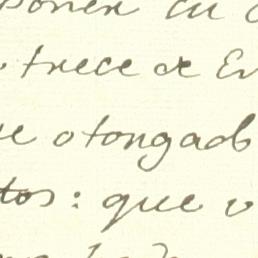 poner en
trece de En
ue otongado
tos: que v